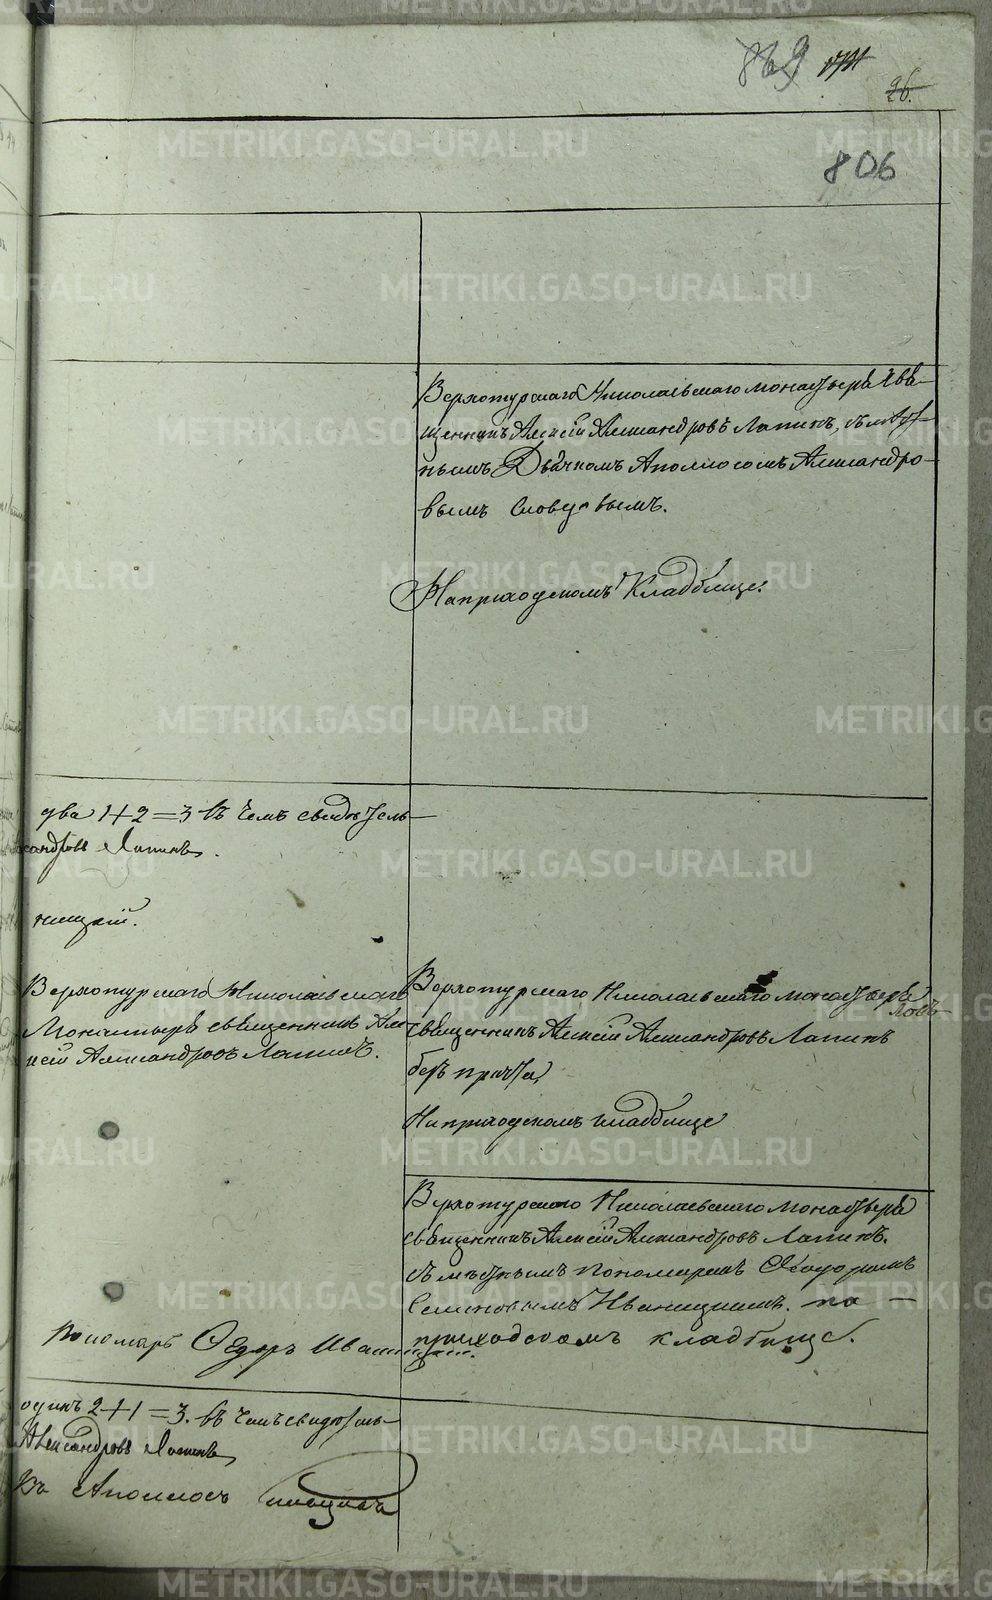 869
26.
806
Верхотурскаго Николаевскаго монастыря Свя-
щенникъ Алексій Александровъ Лапинъ, съ мѣст-
нымъ Дьячкомъ Аполлосомъ Александро-
вымъ Словцовымъ.
На приходскомъ Кладбище.
два 1+2=3 въ чемъ свидѣтель-
сандровъ Лапинъ.
ницкій.
Верхотурскаго Николаевскаго
Монастыря священникъ Але-
ксій Александровъ Лапинъ.
Верхотурскаго Николаевскаго монастыря
священникъ Алексій Александровъ Лапинъ
безъ причта,
На приходскомъ кладбище
Верхотурскаго Николаевскаго монастыря
священникъ Алексій Александровъ Лапинъ.
съ мѣстнымъ пономаремъ Ѳеодоромъ
Семеновымъ Иваницкимъ. на
приходскомъ кладбище.
Пономарь Ѳедоръ Иваницкій.
одинъ 2+1=3. въ чемъ свидѣтель-
Александровъ Лапинъ
Аполлосъ Словцовъ
METRIKI.GASO-URAL.RU